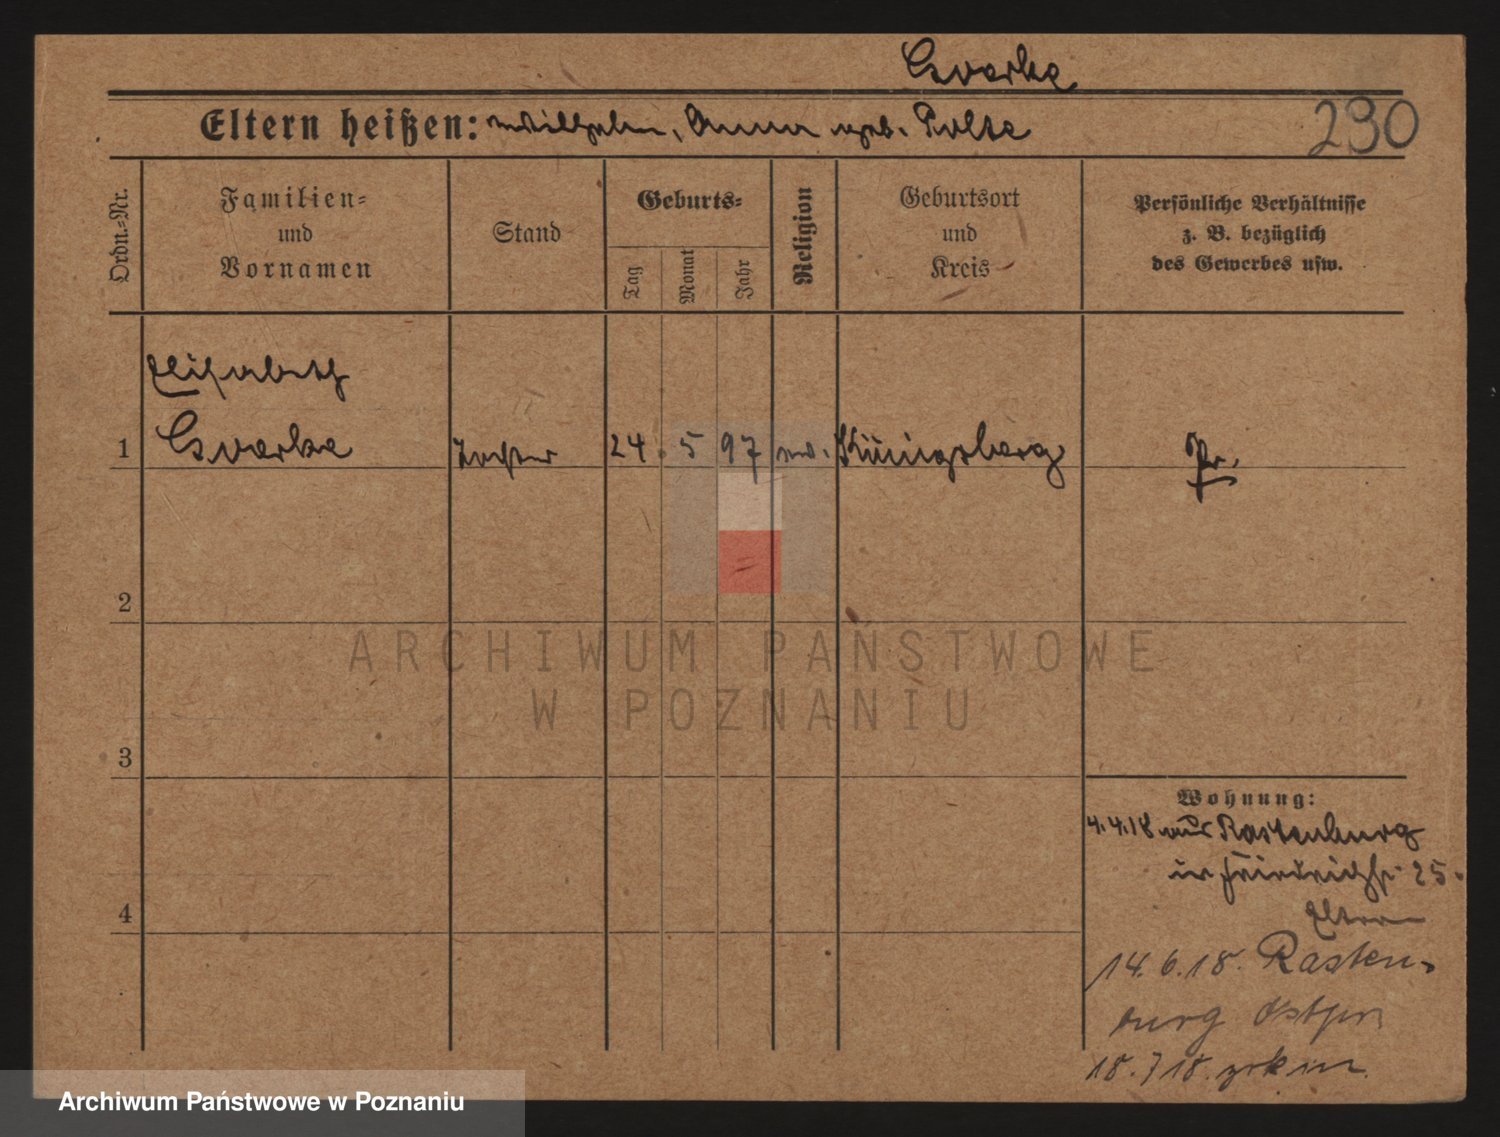 Goerke
Eltern heißen: Wilhelm, Anna geb. Polte
230
Ordn.-Nr.
Familien-
und
Vornamen
Stand
Geburts-
Tag
Monat
Jahr
Religion
Geburtsort
und
Kreis
Persönliche Verhältnisse
z. B. bezüglich
des Gewerbes usw.
Elisabeth
1
Goerke
Tochter
24.
5
97
ev.
Königsberg
Pr.
2
3
4
Wohnung:
4.4.18 aus Rastenburg
in Friedrichstr. 25.
Eltern
14.6.18. Rasten-
burg Ostpr
18.7.18.
ARCHIWUM PAŃSTWOWE
W POZNANIU
Archiwum Państwowe w Poznaniu